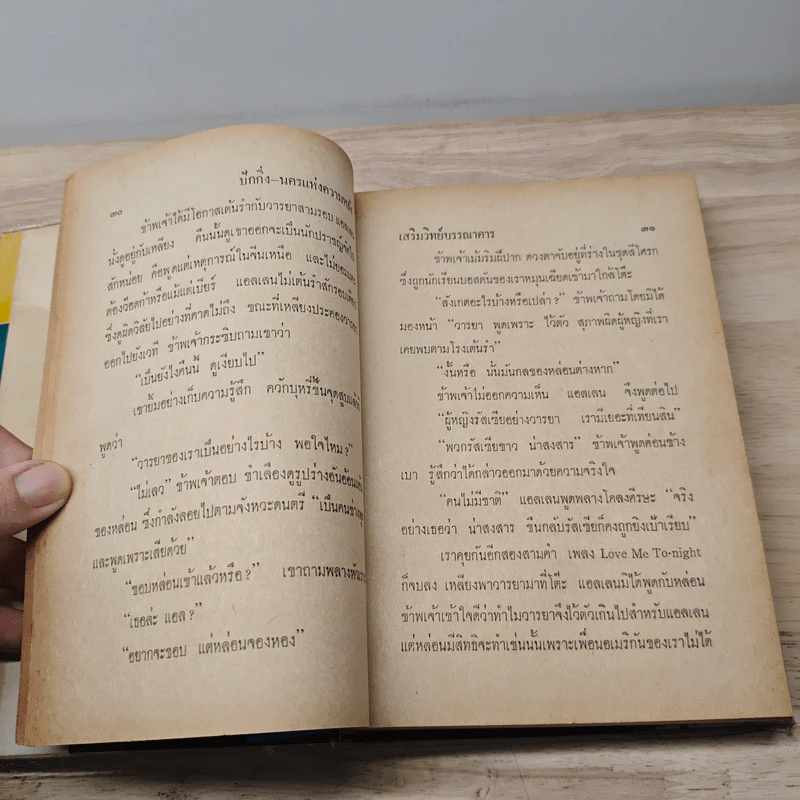 ปักกิ่ง–นครแห่งความหลัง
๓๐
ข้าพเจ้าได้มีโอกาสเต้นรำกับวารยาสามรอบ แอลเลน
นั่งดูอยู่กับเหลียง คืนนั้นดูเขาออกจะเป็นนักปราชญ์
สักหน่อย คือพูดแต่เหตุการณ์ในจีนเหนือ และไม่ยอม
ต้องว๊อดก้าหรือแม้แต่เบียร์ แอลเลนไม่เต้นรำสักรอบเดียว
ซึ่งดูผิดวิสัยไปอย่างที่คาดไม่ถึง ขณะที่เหลียงประคองวารยา
ออกไปยังเวที ข้าพเจ้ากระซิบถามเขาว่า
“เป็นยังไงคืนนี้ ดูเงียบไป”
เขายิ้มอย่างเก็บความรู้สึก ควักบุหรี่ขึ้นจุดสูบแล้ว
พูดว่า
“วารยาของเราเป็นอย่างไรบ้าง พอใจไหม?”
“ไม่เลว” ข้าพเจ้าตอบ ชำเลืองดูรูปร่างอันอ้อนแอ้น
ของหล่อน ซึ่งกำลังลอยไปตามจังหวะดนตรี “เป็นคนช่างพูด
และพูดเพราะเสียด้วย”
“ชอบหล่อนเข้าแล้วหรือ?” เขาถามพลางหัวเราะ
“เธอล่ะ แอล?”
“อยากจะชอบ แต่หล่อนจองหอง”
เสริมวิทย์บรรณาคาร
๓๑
ข้าพเจ้าเม้มริมฝีปาก ดวงตาจับอยู่ที่ร่างในชุดสีโศรก
ซึ่งถูกนักเรียนบอสตันของเราหมุนเฉียดเข้ามาใกล้โต๊ะ
“สังเกตอะไรบ้างหรือเปล่า?” ข้าพเจ้าถามโดยมิได้
มองหน้า “วารยา พูดเพราะ ไว้ตัว สุภาพผิดผู้หญิงที่เรา
เคยพบตามโรงเต้นรำ”
“งั้นหรือ นั่นมันกลของหล่อนต่างหาก”
ข้าพเจ้าไม่ออกความเห็น แอลเลน จึงพูดต่อไป
“ผู้หญิงรัสเซียอย่างวารยา เรามีเยอะที่เทียนสิน”
“พวกรัสเซียขาว น่าสงสาร” ข้าพเจ้าพูดค่อนข้าง
เบา รู้สึกว่าได้กล่าวออกมาด้วยความจริงใจ
“คนไม่มีชาติ” แอลเลนพูดพลางโคลงศีรษะ “จริง
อย่างเธอว่า น่าสงสาร ขืนกลับรัสเซียก็คงถูกยิงเป้าเรียบ”
เราคุยกันอีกสองสามคำ เพลง Love Me To-night
ก็จบลง เหลียงพาวารยามาที่โต๊ะ แอลเลนมิได้พูดกับหล่อน
ข้าพเจ้าเข้าใจดีว่าทำไมวารยาจึงไว้ตัวเกินไปสำหรับแอลเลน
แต่หล่อนมีสิทธิจะทำเช่นนั้นเพราะเพื่อนอเมริกันของเราไม่ได้